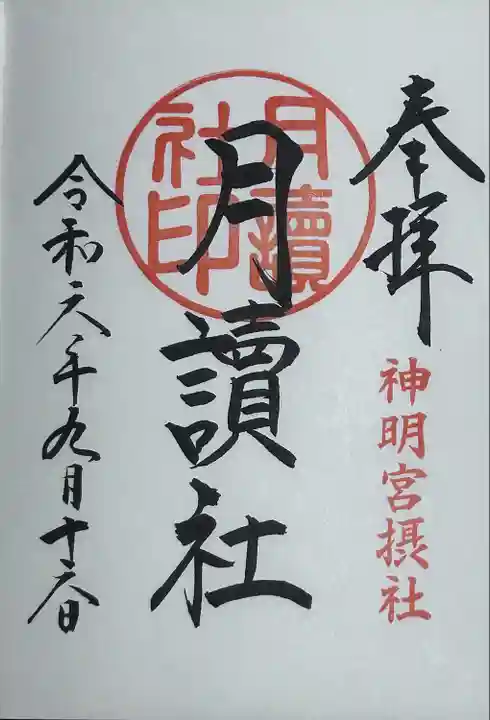 奉拝
神明宮摂社
月讀
社印
月讀社
令和六年九月十六日